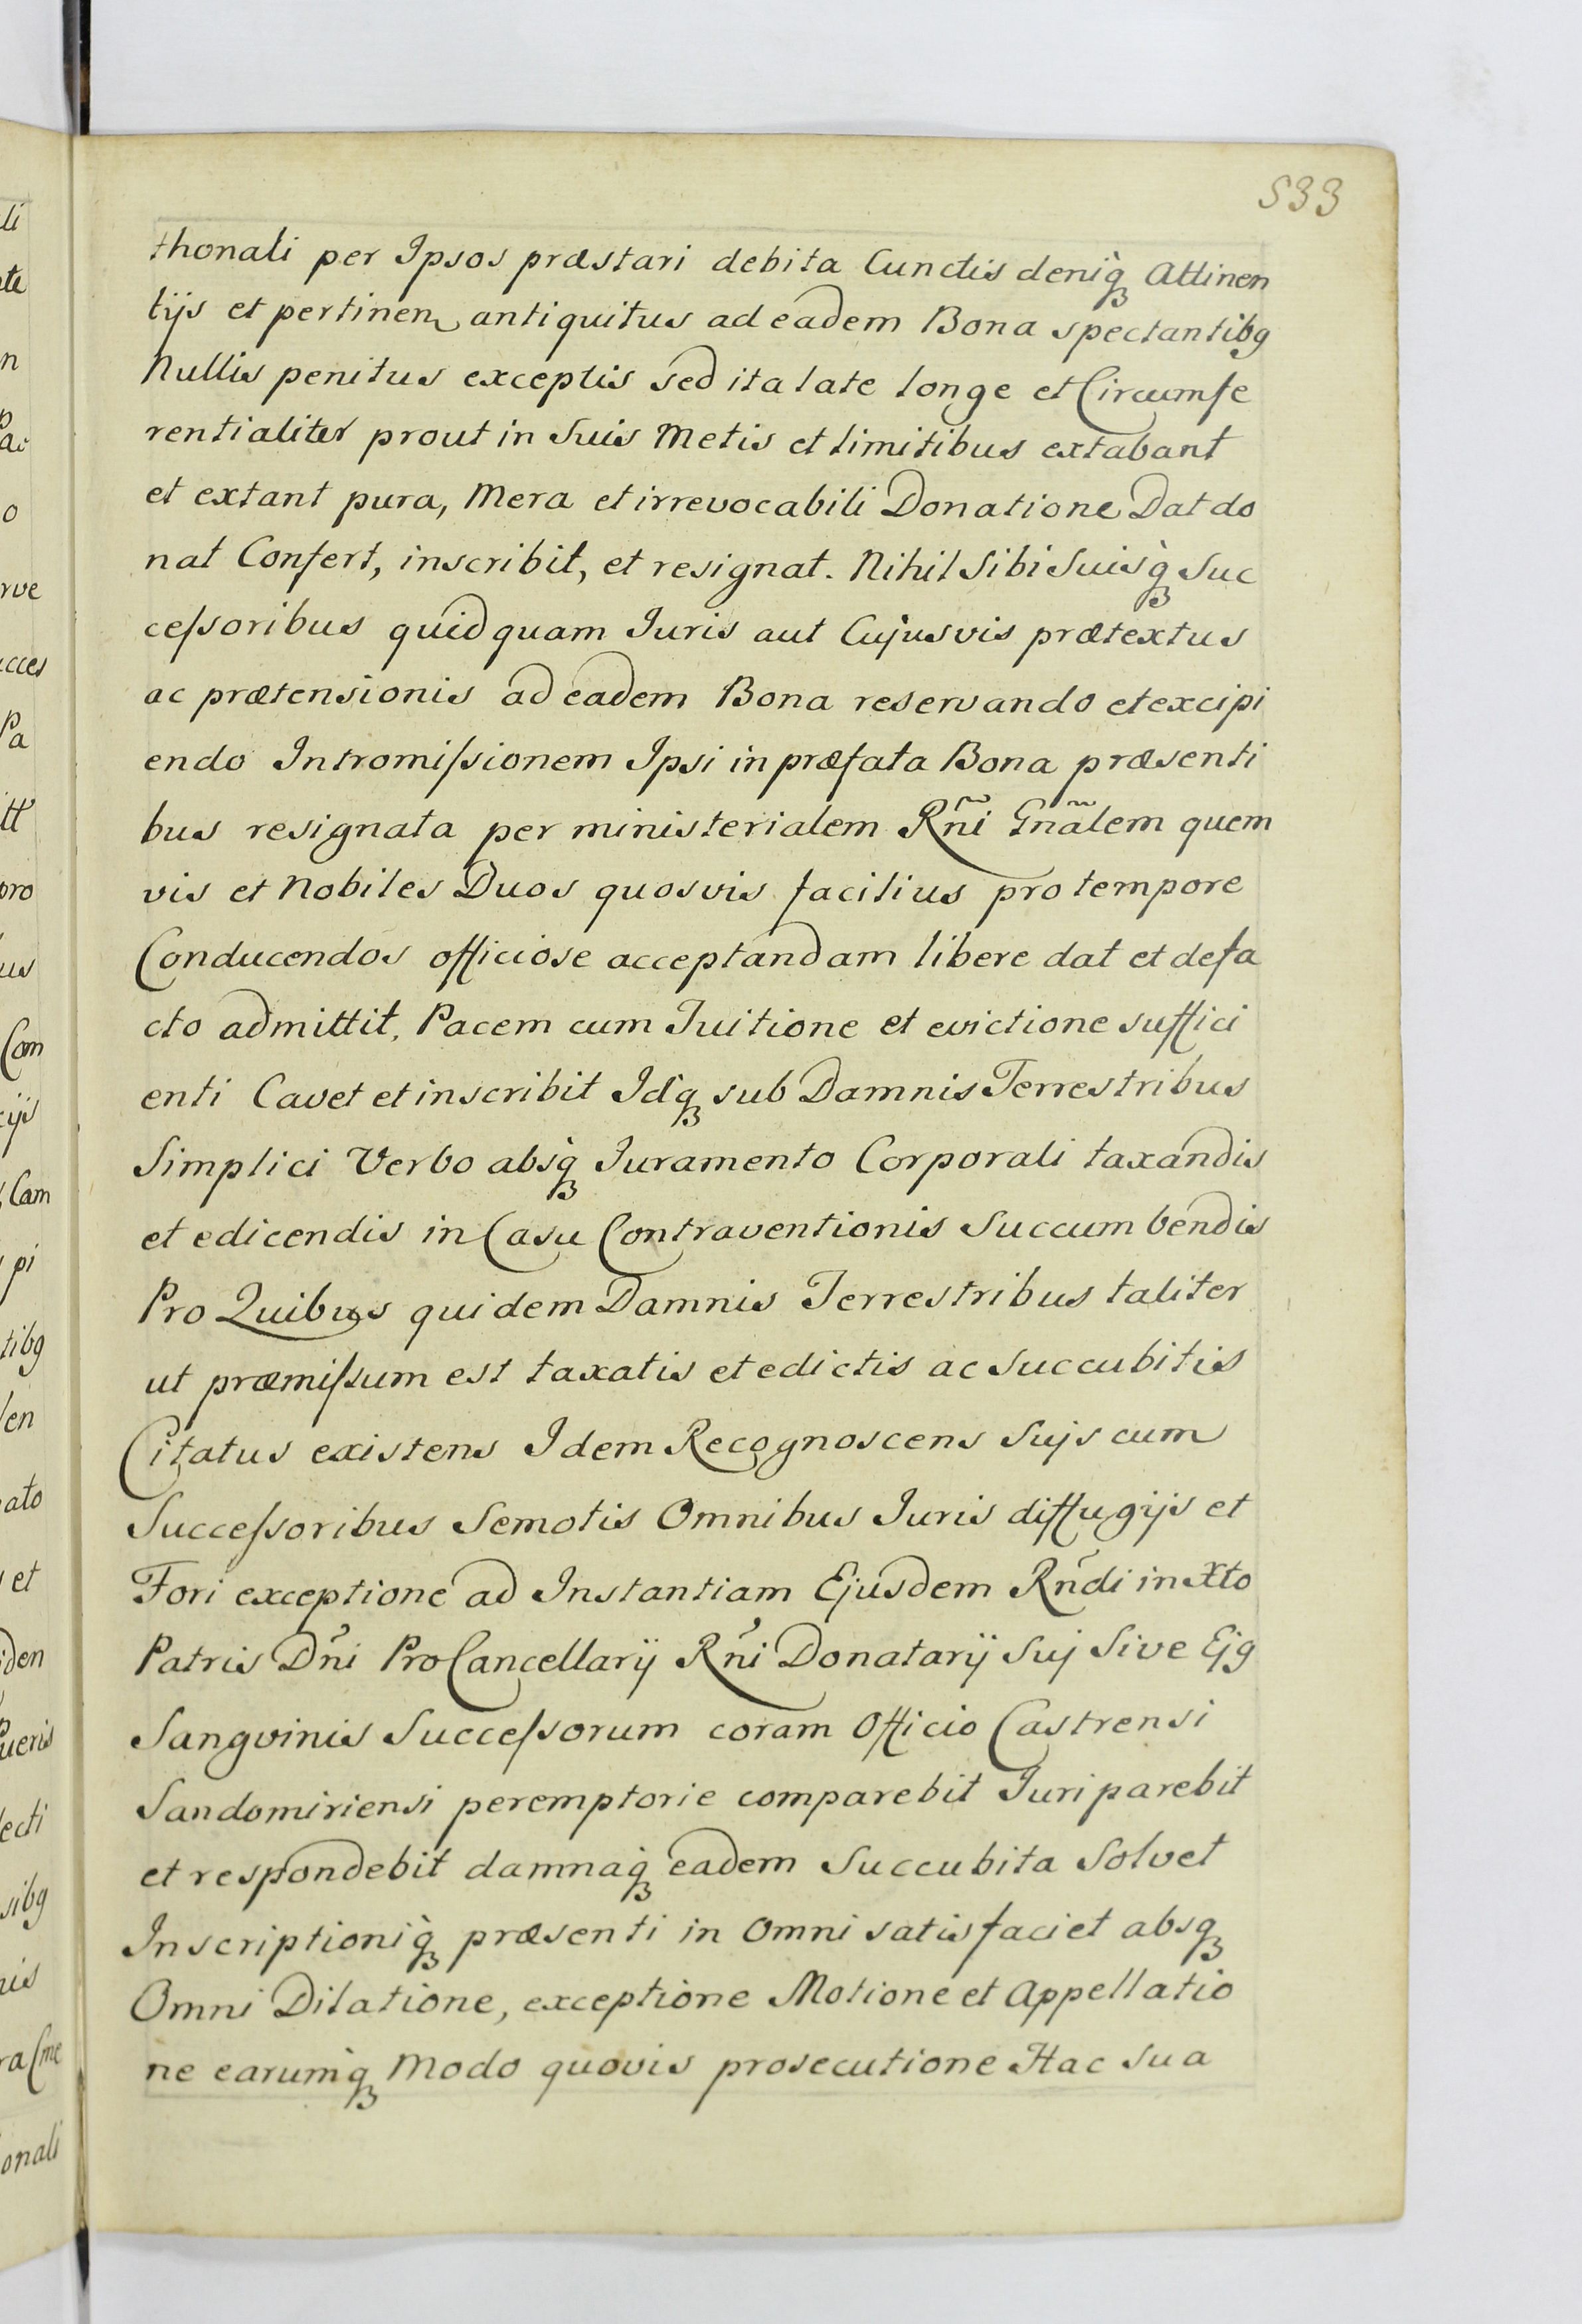 533
thonali per Ipsos præstari debita Cunctis deniq̀ꝫ Attinen
tijs et pertinen antiquitus ad eadem Bona spectantibꝯ
Nullis penitus exceptis sed ita late longe et Circumfe
rentialiter prout in Suis Metis et limitibus extabant
et extant pura, Mera et irrevocabili Donatione Dat do
nat Confert, inscribit, et resignat. Nihil Sibi Suisq̀ꝫ Suc
ceſsoribus quidquam Iuris aut Cujusvis prætextus
ac prætensionis ad eadem Bona reservando et excipi
endo Intromiſsionem Ipsi in præfata Bona præsenti
bus resignata per ministerialem Rñi Gnãlem quem
vis et Nobiles Duos quosvis facilius pro tempore
Conducendos officiose acceptandam libere dat et defa
cto admittit, Pacem cum Tuitione et evictione suffici
enti Cavet et inscribit Idq̀ꝫ sub Damnis Terrestribus
Simplici Verbo absq̀ꝫ Iuramento Corporali taxandis
et edicendis in Casu Contraventionis Succumbendis
Pro Quibus quidem Damnis Terrestribus taliter
ut præmiſsum est taxatis et edictis ac Succubitis
Citatus existens Idem Recognoscens Sujs cum
Succeſsoribus Semotis Omnibus Iuris diffugijs et
Fori exceptione ad Instantiam Ejusdem Rñdi in Xto
Patris Dñi ProCancellarij Rñi Donatarij Suj Sive Ejꝯ
Sangvinis Succeſsorum coram Officio Castrensi
Sandomiriensi peremptorie comparebit Iuri parebit
et respondebit damnaq̀ꝫ eadem Succubita Solvet
Inscriptioniq̀ꝫ præsenti in Omni satisfaciet absqꝫ
Omni Dilatione, exceptione Motione et Appellatio
ne earumq̀ꝫ Modo quovis prosecutione Hac Sua